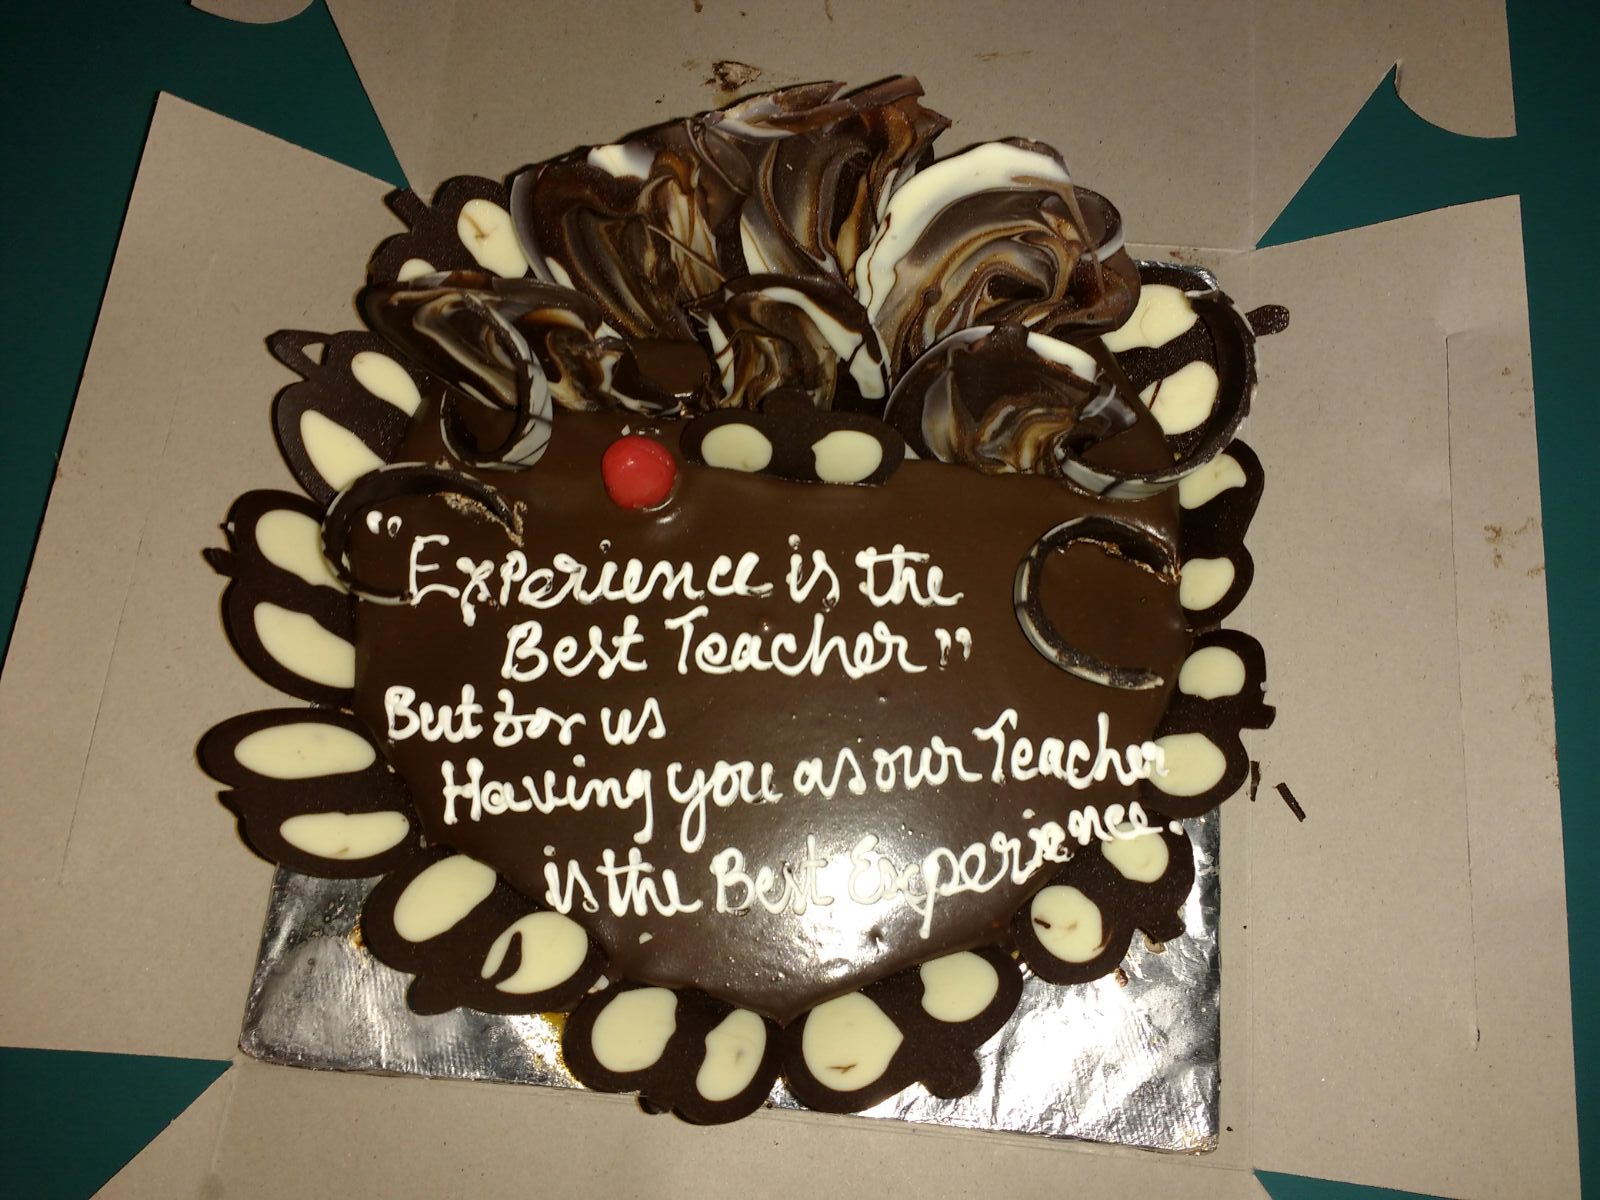 "Experience is the
Best Teacher"
But for us
Having you as our Teacher
is the Best Experience.